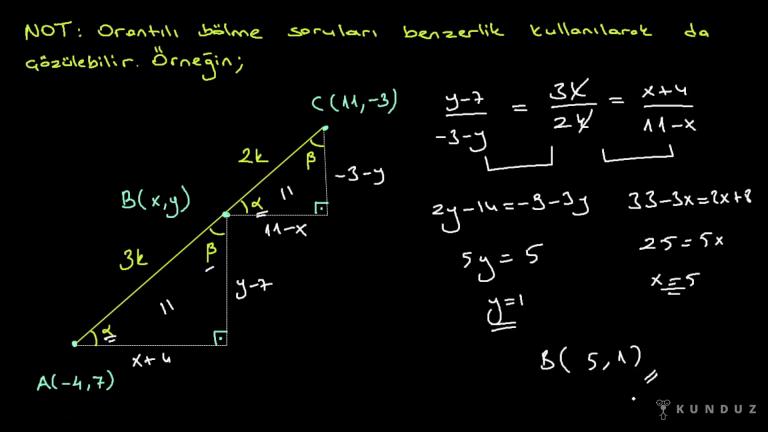 NOT: Orantılı bölme soruları benzerlik kullanılarak da
çözülebilir. Örneğin;
C(11,-3)
2k
β
-3-y
B(x,y)
α
11-x
3k
β
y-7
α
x+4
A(-4,7)
y-7/-3-y = 3k/2k = x+4/11-x
2y-14=-9-3y
33-3x=2x+8
5y=5
25=5x
y=1
x=5
B(5,1)
KUNDUZ